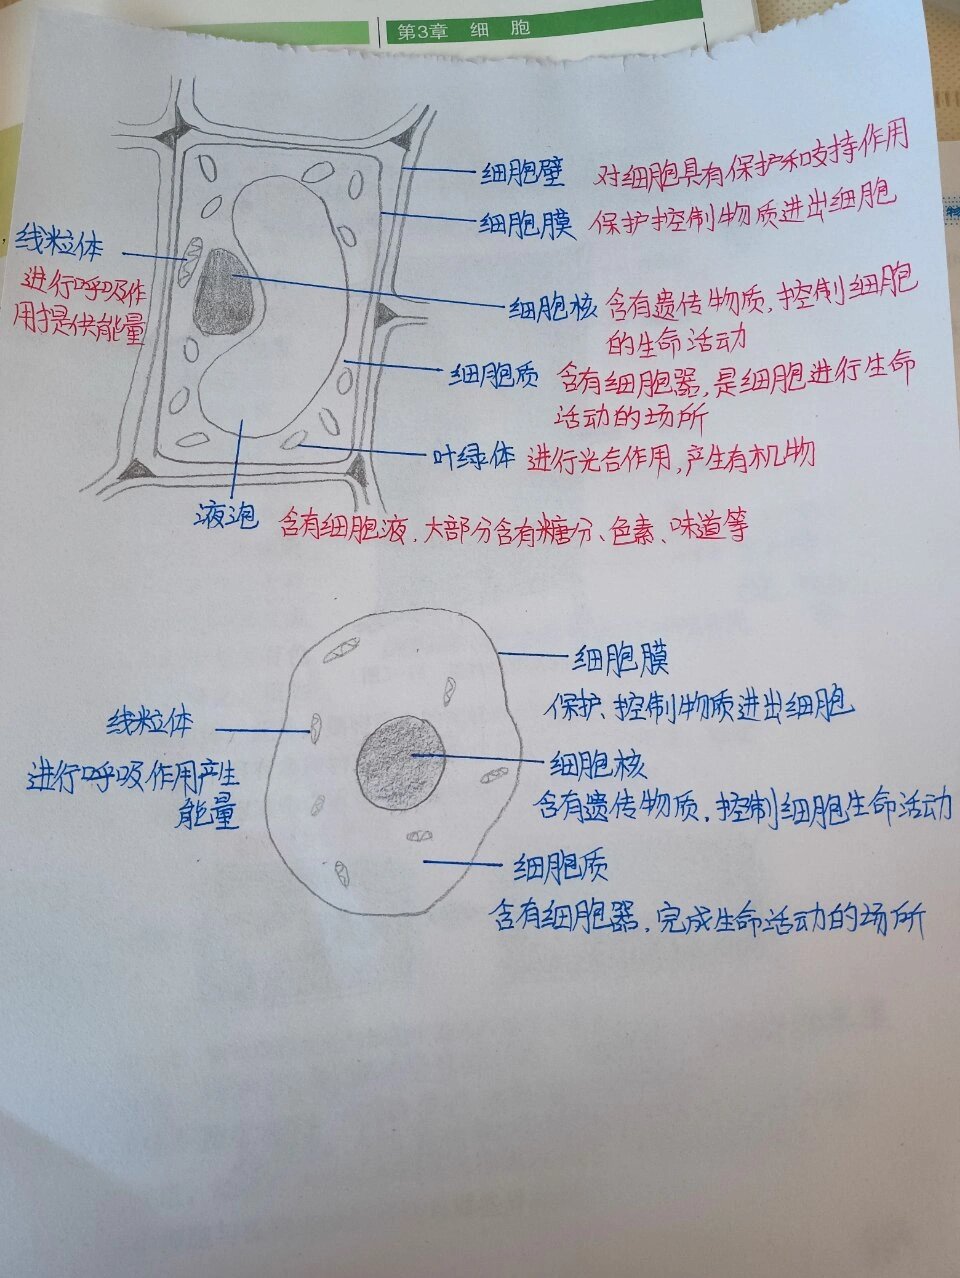 第3章 细 胞
细胞壁 对细胞具有保护和支持作用
细胞膜 保护控制物质进出细胞
线粒体
进行呼吸作
用提供能量
细胞核 含有遗传物质,控制细胞
的生命活动
细胞质 含有细胞器,是细胞进行生命
活动的场所
叶绿体 进行光合作用,产生有机物
液泡 含有细胞液,大部分含有糖分、色素、味道等
细胞膜
保护、控制物质进出细胞
线粒体
进行呼吸作用产生
能量
细胞核
含有遗传物质,控制细胞生命活动
细胞质
含有细胞器,完成生命活动的场所